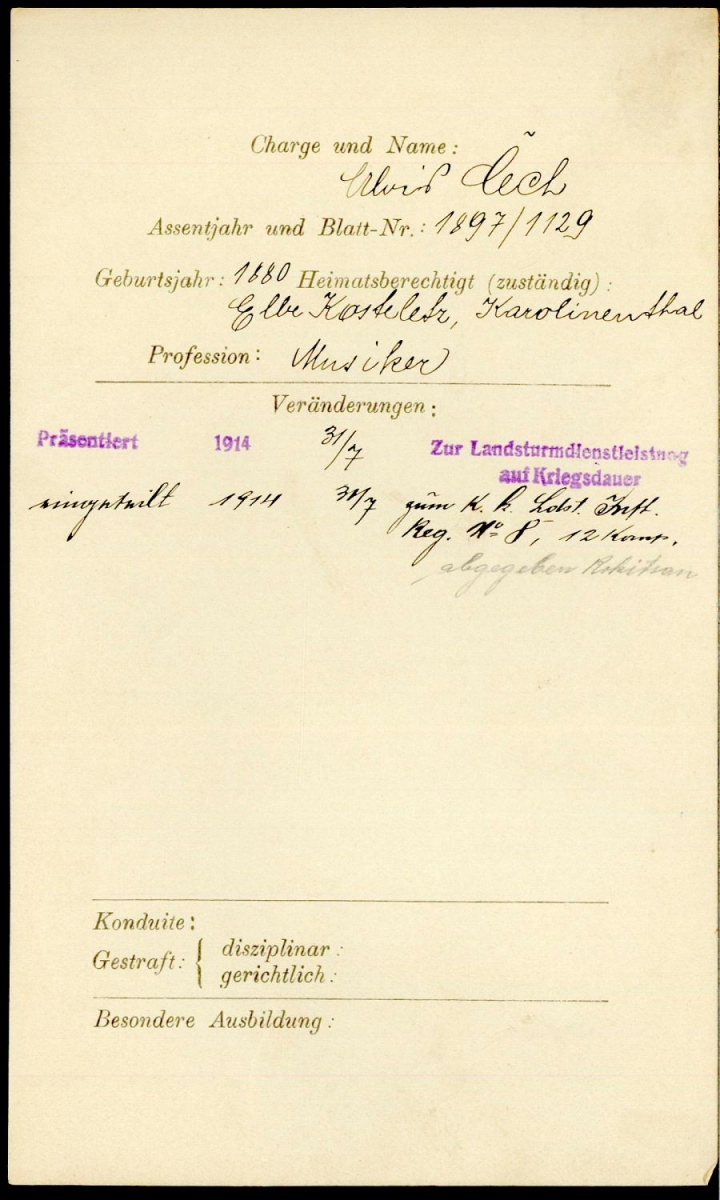 Charge und Name:
Alois Čech
Assentjahr und Blatt-Nr.: 1897/1129
Geburtsjahr: 1880 Heimatsberechtigt (zuständig):
Elbe Kosteletz, Karolinenthal
Profession: Musiker
Veränderungen:
Präsentiert 1914 31/7 Zur Landsturmdienstleistung
auf Kriegsdauer
eingeteilt 1914 31/7 zum k. k. Ldst. Inft.
Reg. No 8, 12 Komp.
abgegeben Rokitzan
Konduite:
Gestraft: { disziplinar:
gerichtlich:
Besondere Ausbildung: